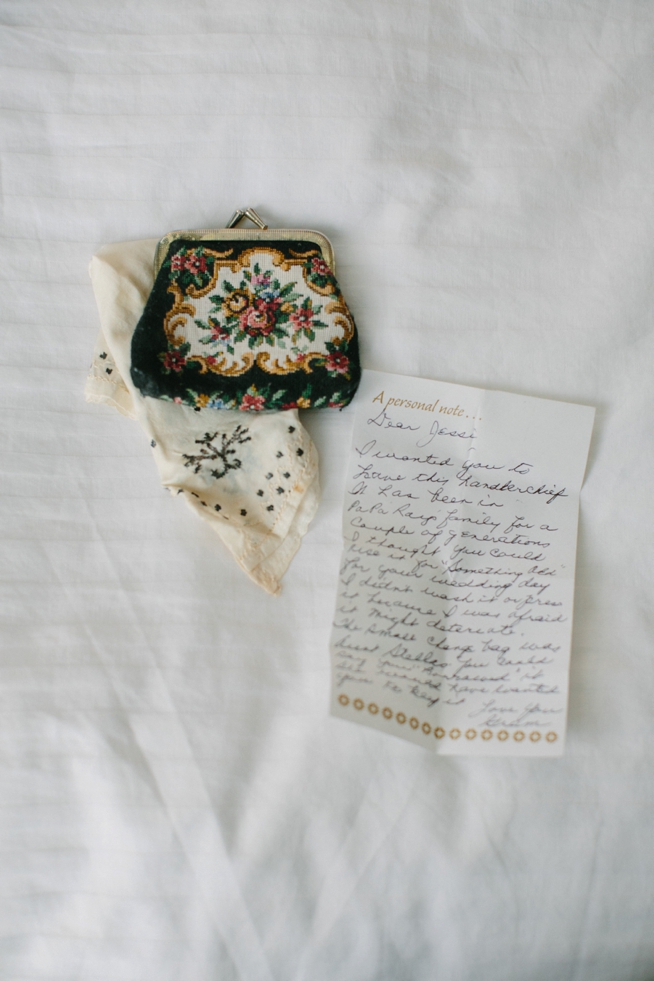 A personal note...
Dear Jessi
I wanted you to
have this handkerchief
It has been in
PaPa Ray's family for a
couple of generations
I thought you could
use it for "Something Old"
for your wedding day
I didn't wash it or press
it because I was afraid
it might deteriate.
The small change bag was
you could
say your "Borrowed" it
have wanted
you to keep it
Love you